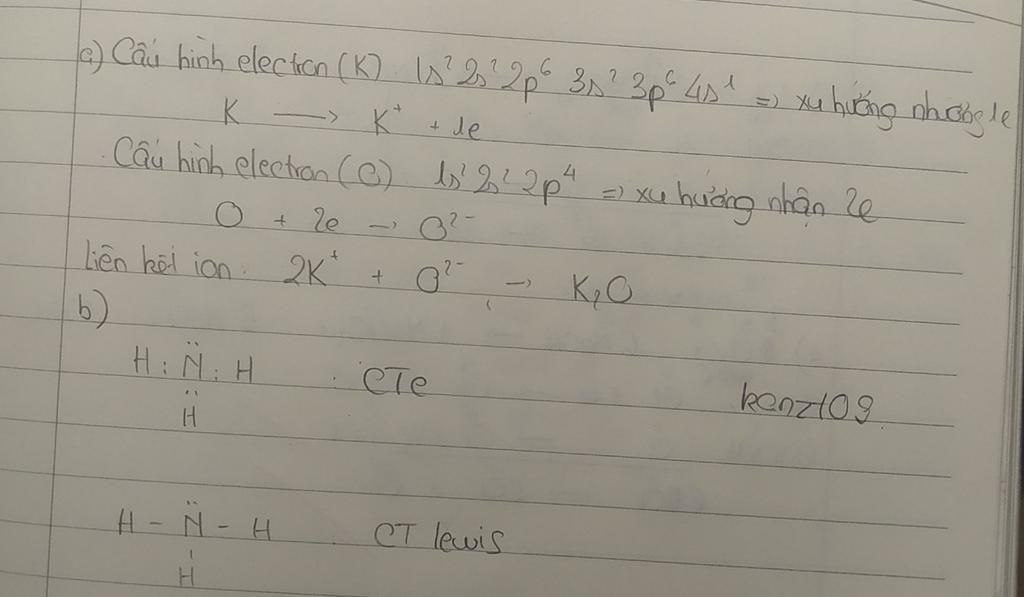 a) Cấu hình electron (K) 1s² 2s² 2p⁶ 3s² 3p⁶ 4s¹ => xu hướng nhường 1e
K → K⁺ + 1e
Cấu hình electron (O) 1s² 2s² 2p⁴ => xu hướng nhận 2e
O + 2e → O²⁻
Liên kết ion: 2K⁺ + O²⁻ → K₂O
b)
H : N̈ : H CTe
¨
H
kenz109
H - N̈ - H CT lewis
ı
H